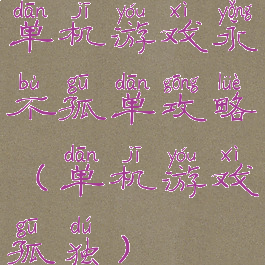 dān jī yóu xì yǒng
单机游戏永
bù gū dān gōng lüè
不孤单攻略
dān jī yóu xì
（单机游戏
gū dú
孤独）